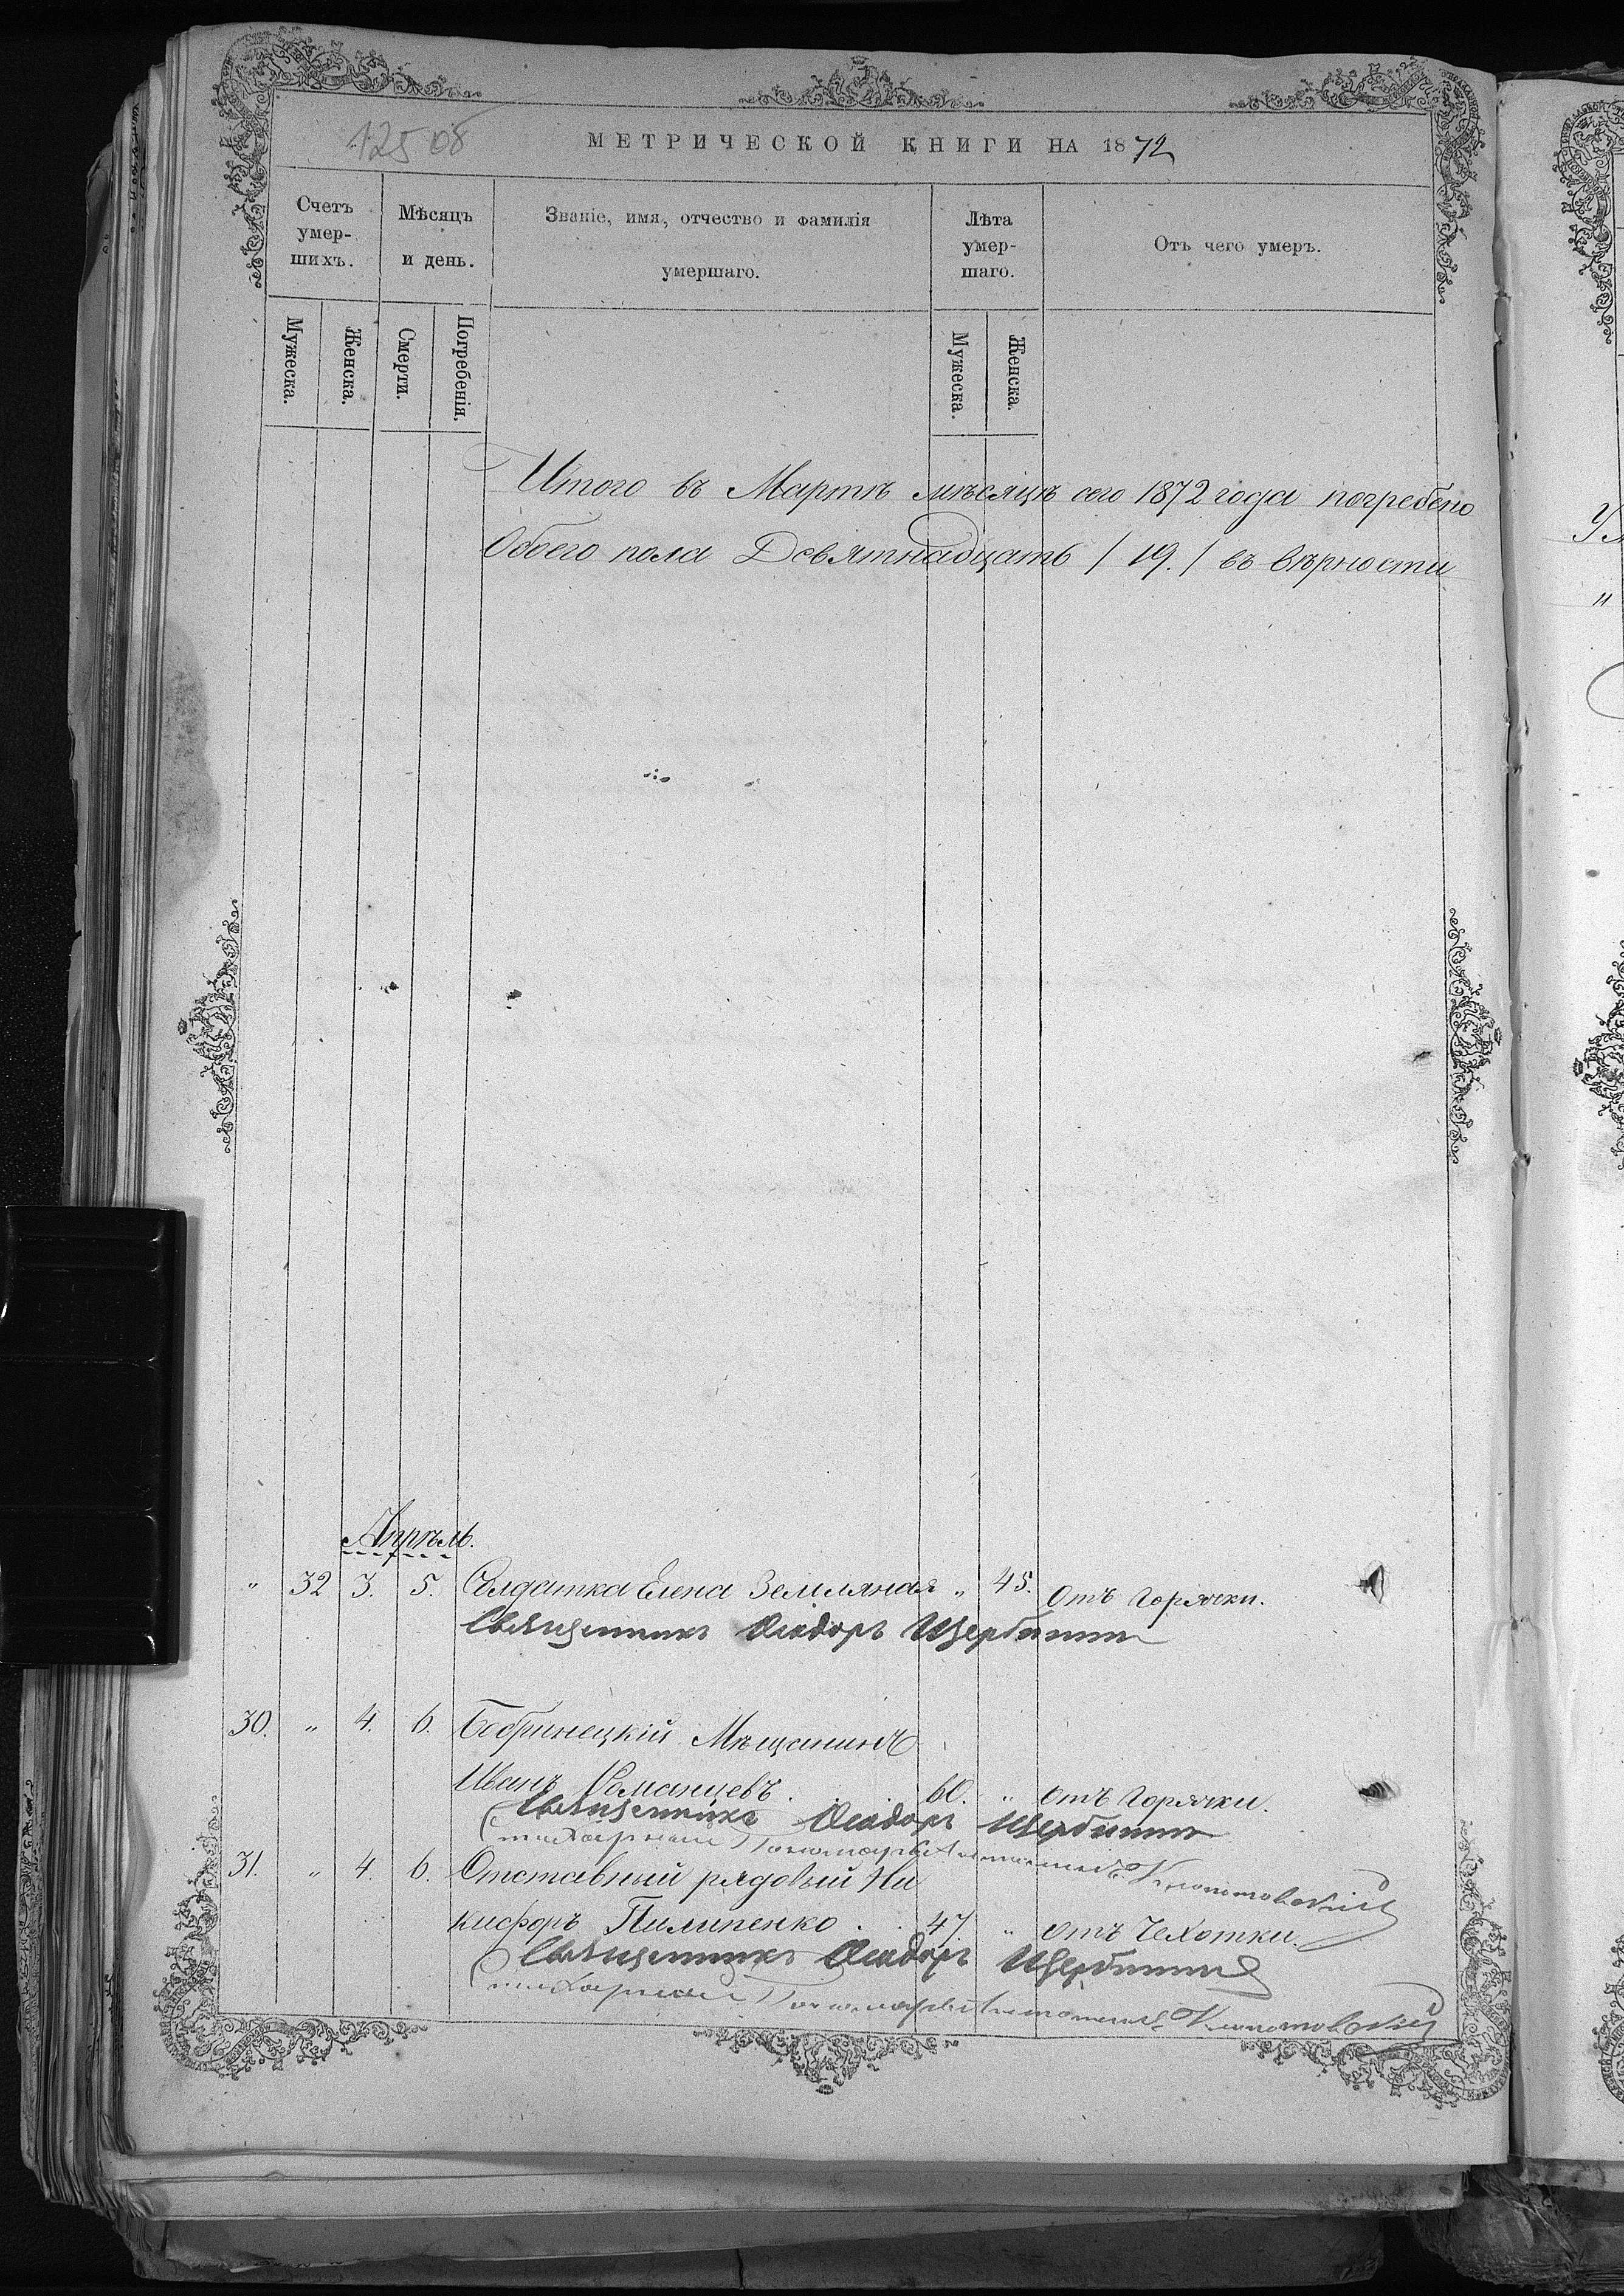 12508
МЕТРИЧЕСКОЙ КНИГИ НА 1872
Счетъ умер-шихъ.
Мѣсяцъ и день.
Званіе, имя, отчество и фамилія умершаго.
Лѣта умер-шаго.
Отъ чего умеръ.
Мужеска.
Женска.
Смерти.
Погребенія.
Мужеска.
Женска.
Итого въ Мартѣ мѣсяцѣ сего 1872 года погребено
Обоего пола Девятнадцать / 19. / въ вѣрности
Апрѣль.
" 32 3. 5. Солдатка Елена Земляная " 45. отъ Горячки.
Священникъ Ѳеодоръ Щербининъ
30. " 4. 6. Бобринецкій Мѣщанинъ
Иванъ Романцевъ . . 60. " отъ Горячки.
Священникъ Ѳеодоръ Щербининъ
Стихарный Пономарь
31. " 4. 6. Отставный рядовый Ни
кифоръ Пилипенко . . 47 " отъ Чехотки.
Священникъ Ѳеодоръ Щербининъ
Стихарный Пономарь